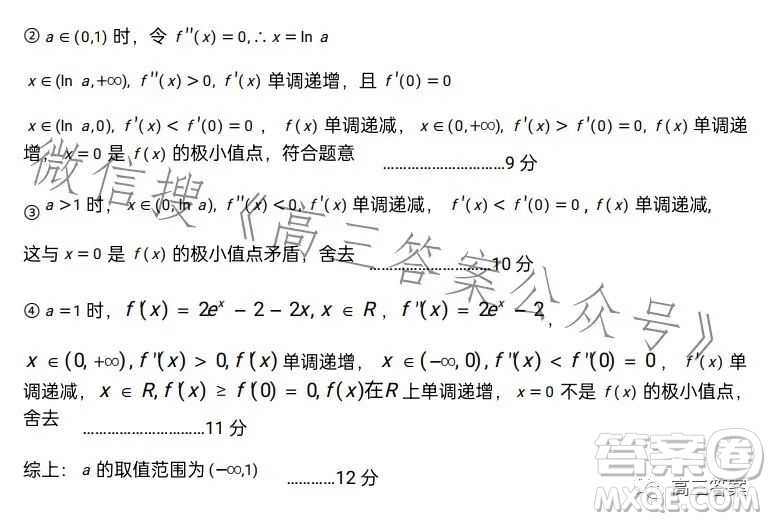 ② a∈(0,1) 时，令 f''(x)=0,∴x=ln a
x∈(ln a,+∞), f''(x)>0, f'(x) 单调递增，且 f'(0)=0
x∈(ln a,0), f'(x)<f'(0)=0 ， f(x) 单调递减， x∈(0,+∞), f'(x)>f'(0)=0, f(x) 单调递
增，x=0 是 f(x) 的极小值点，符合题意 …………………………9 分
③ a>1 时，x∈(0,ln a), f''(x)<0, f'(x) 单调递减， f'(x)<f'(0)=0 , f(x) 单调递减,
这与 x=0 是 f(x) 的极小值点矛盾，舍去 …………………………10 分
④ a=1 时，f'(x)=2eˣ-2-2x, x∈R ，f''(x)=2eˣ-2 ，
x∈(0,+∞), f''(x)>0, f'(x) 单调递增， x∈(-∞,0), f''(x)<f''(0)=0 ， f'(x) 单
调递减，x∈R, f'(x)≥f'(0)=0, f(x)在R 上单调递增， x=0 不是 f(x) 的极小值点，
舍去 …………………………11 分
综上：a 的取值范围为 (-∞,1) …………12 分
微信搜《高三答案公众号》
答案卷
高三答案
MXQE.COM